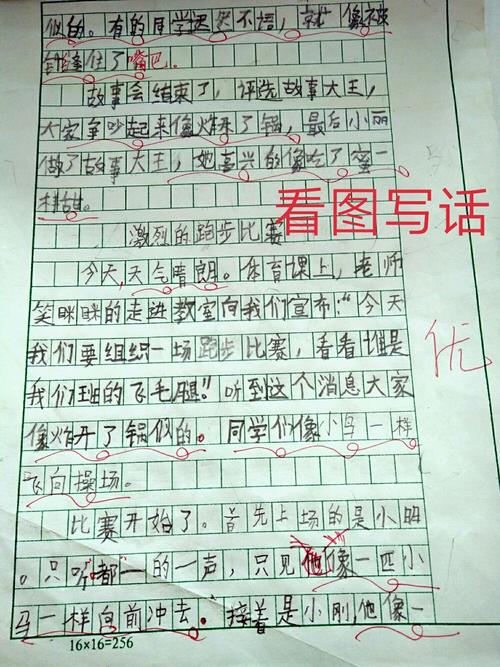 似的。有的同学迟迟不语，就像被
针缝住了嘴巴。
故事会结束了，评选故事大王，
大家争吵起来像炸开了锅，最后小丽
做了故事大王，她喜兴的像吃了蜜一
样甜。
看图写话
激烈的跑步比赛
今天，天气晴朗。体育课上，老师
笑眯眯的走进教室向我们宣布："今天
我们要组织一场跑步比赛，看看谁是
我们班的飞毛腿!"听到这个消息大家
像炸开了锅似的。同学们像小鸟一样
飞向操场。
优
比赛开始了。首先上场的是小明
。只听"都"一的一声，只见他像一匹小
马一样向前冲去。接着是小刚，他像一
16×16=256